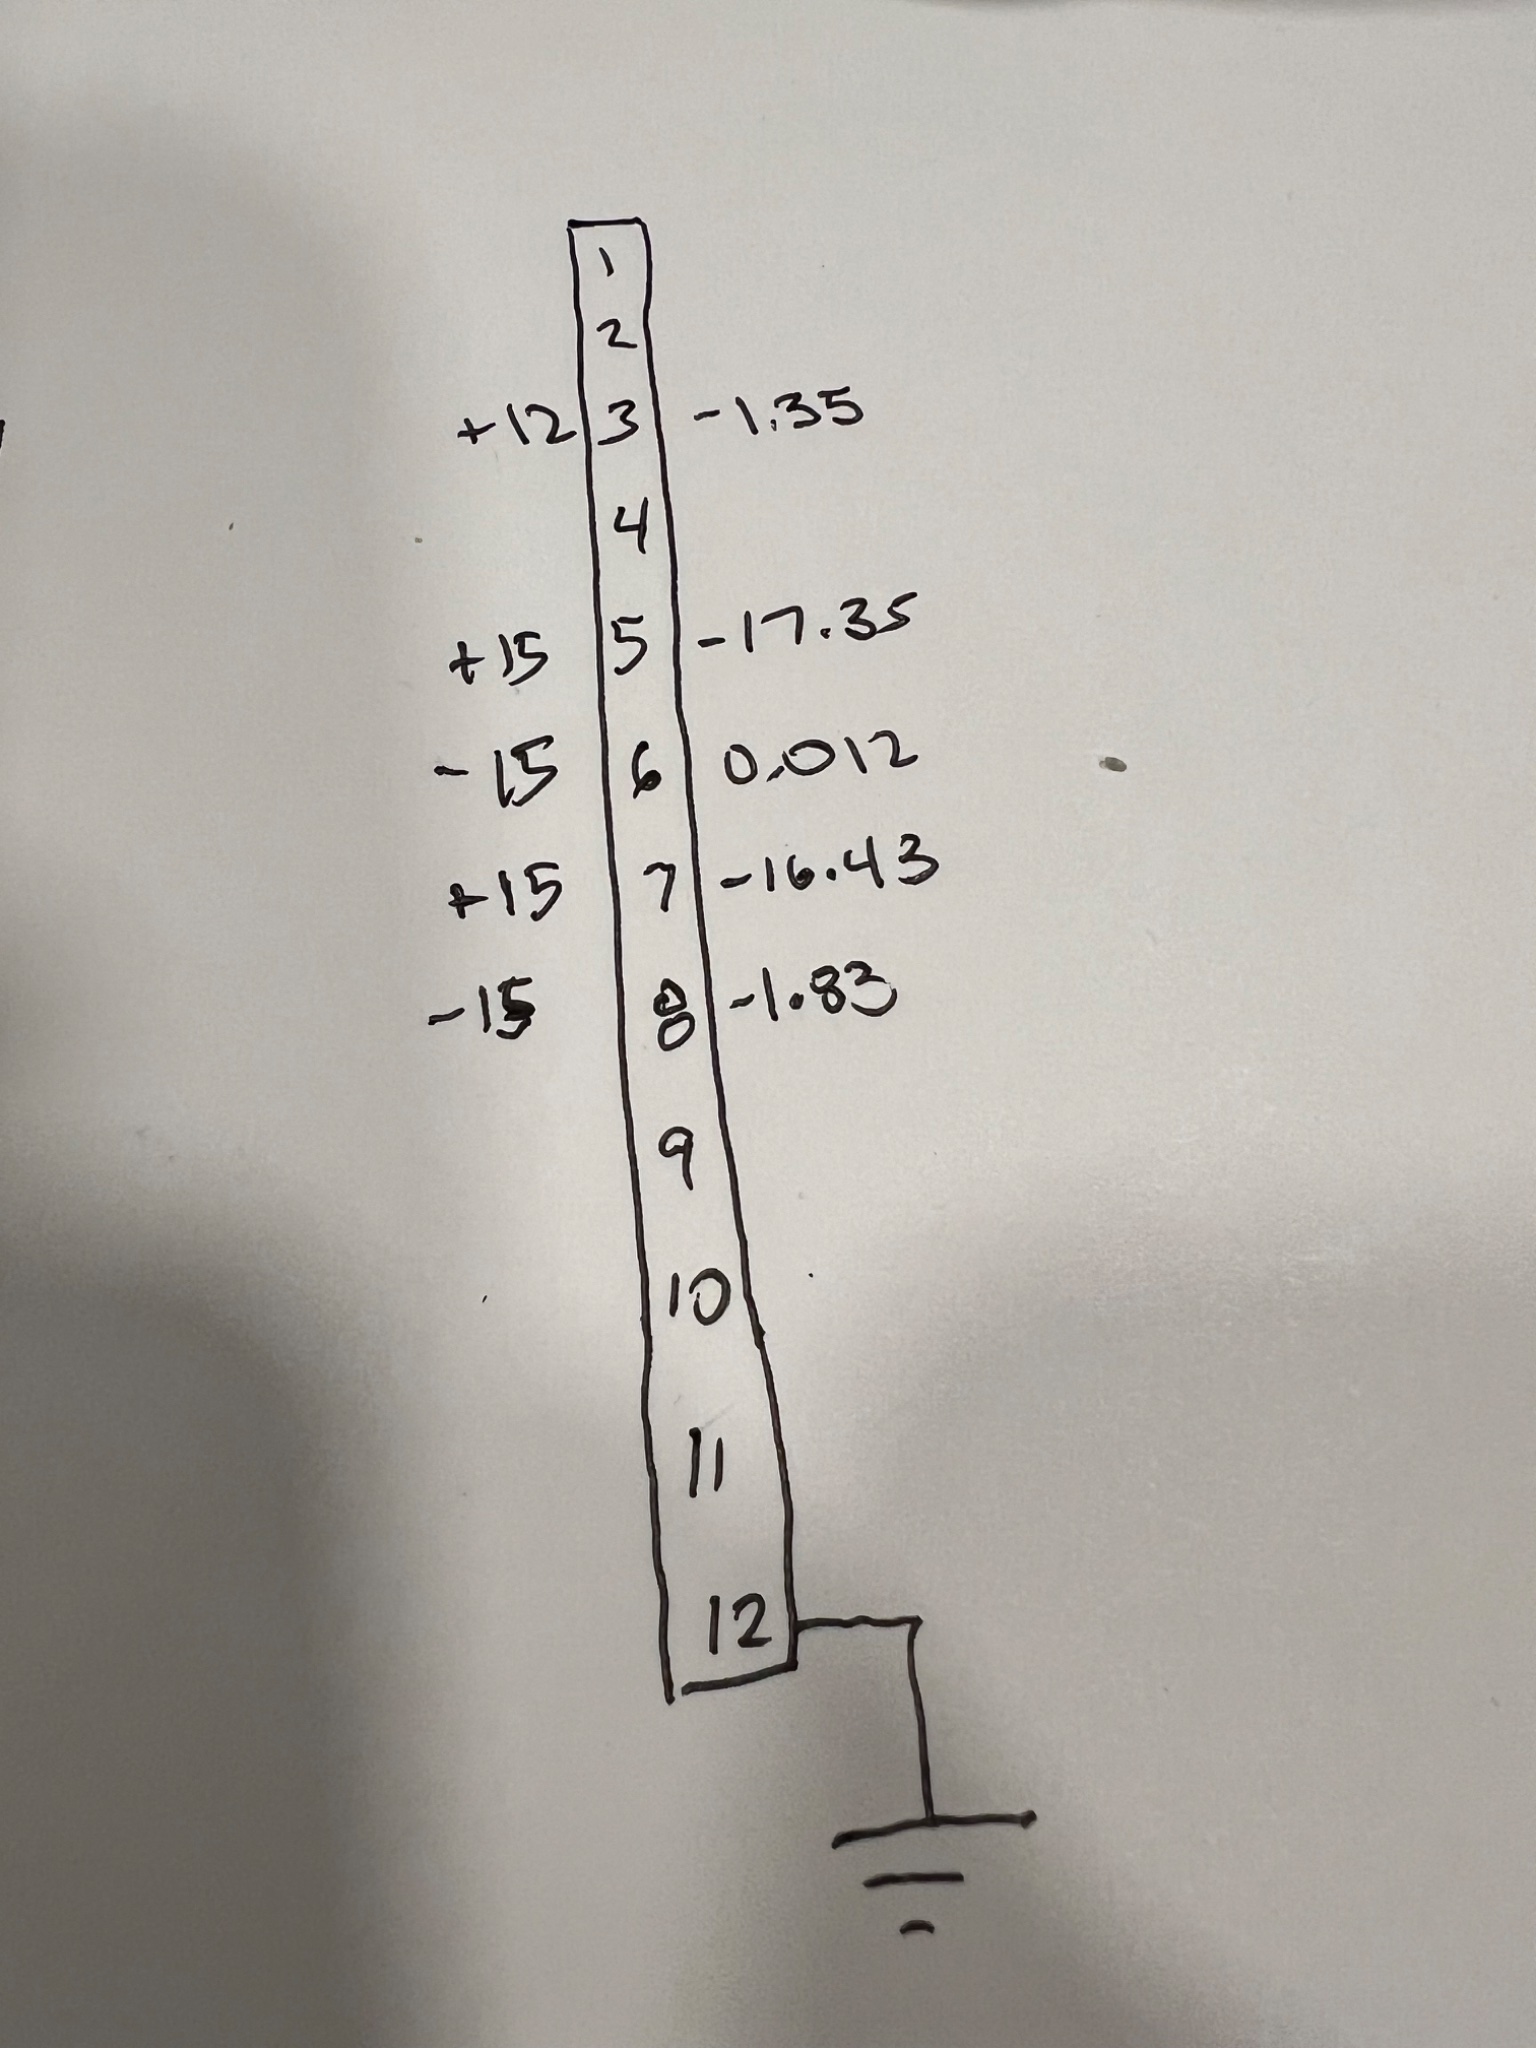 1
2
+12 3 -1.35
4
+15 5 -17.35
-15 6 0.012
+15 7 -16.43
-15 8 -1.83
9
10
11
12